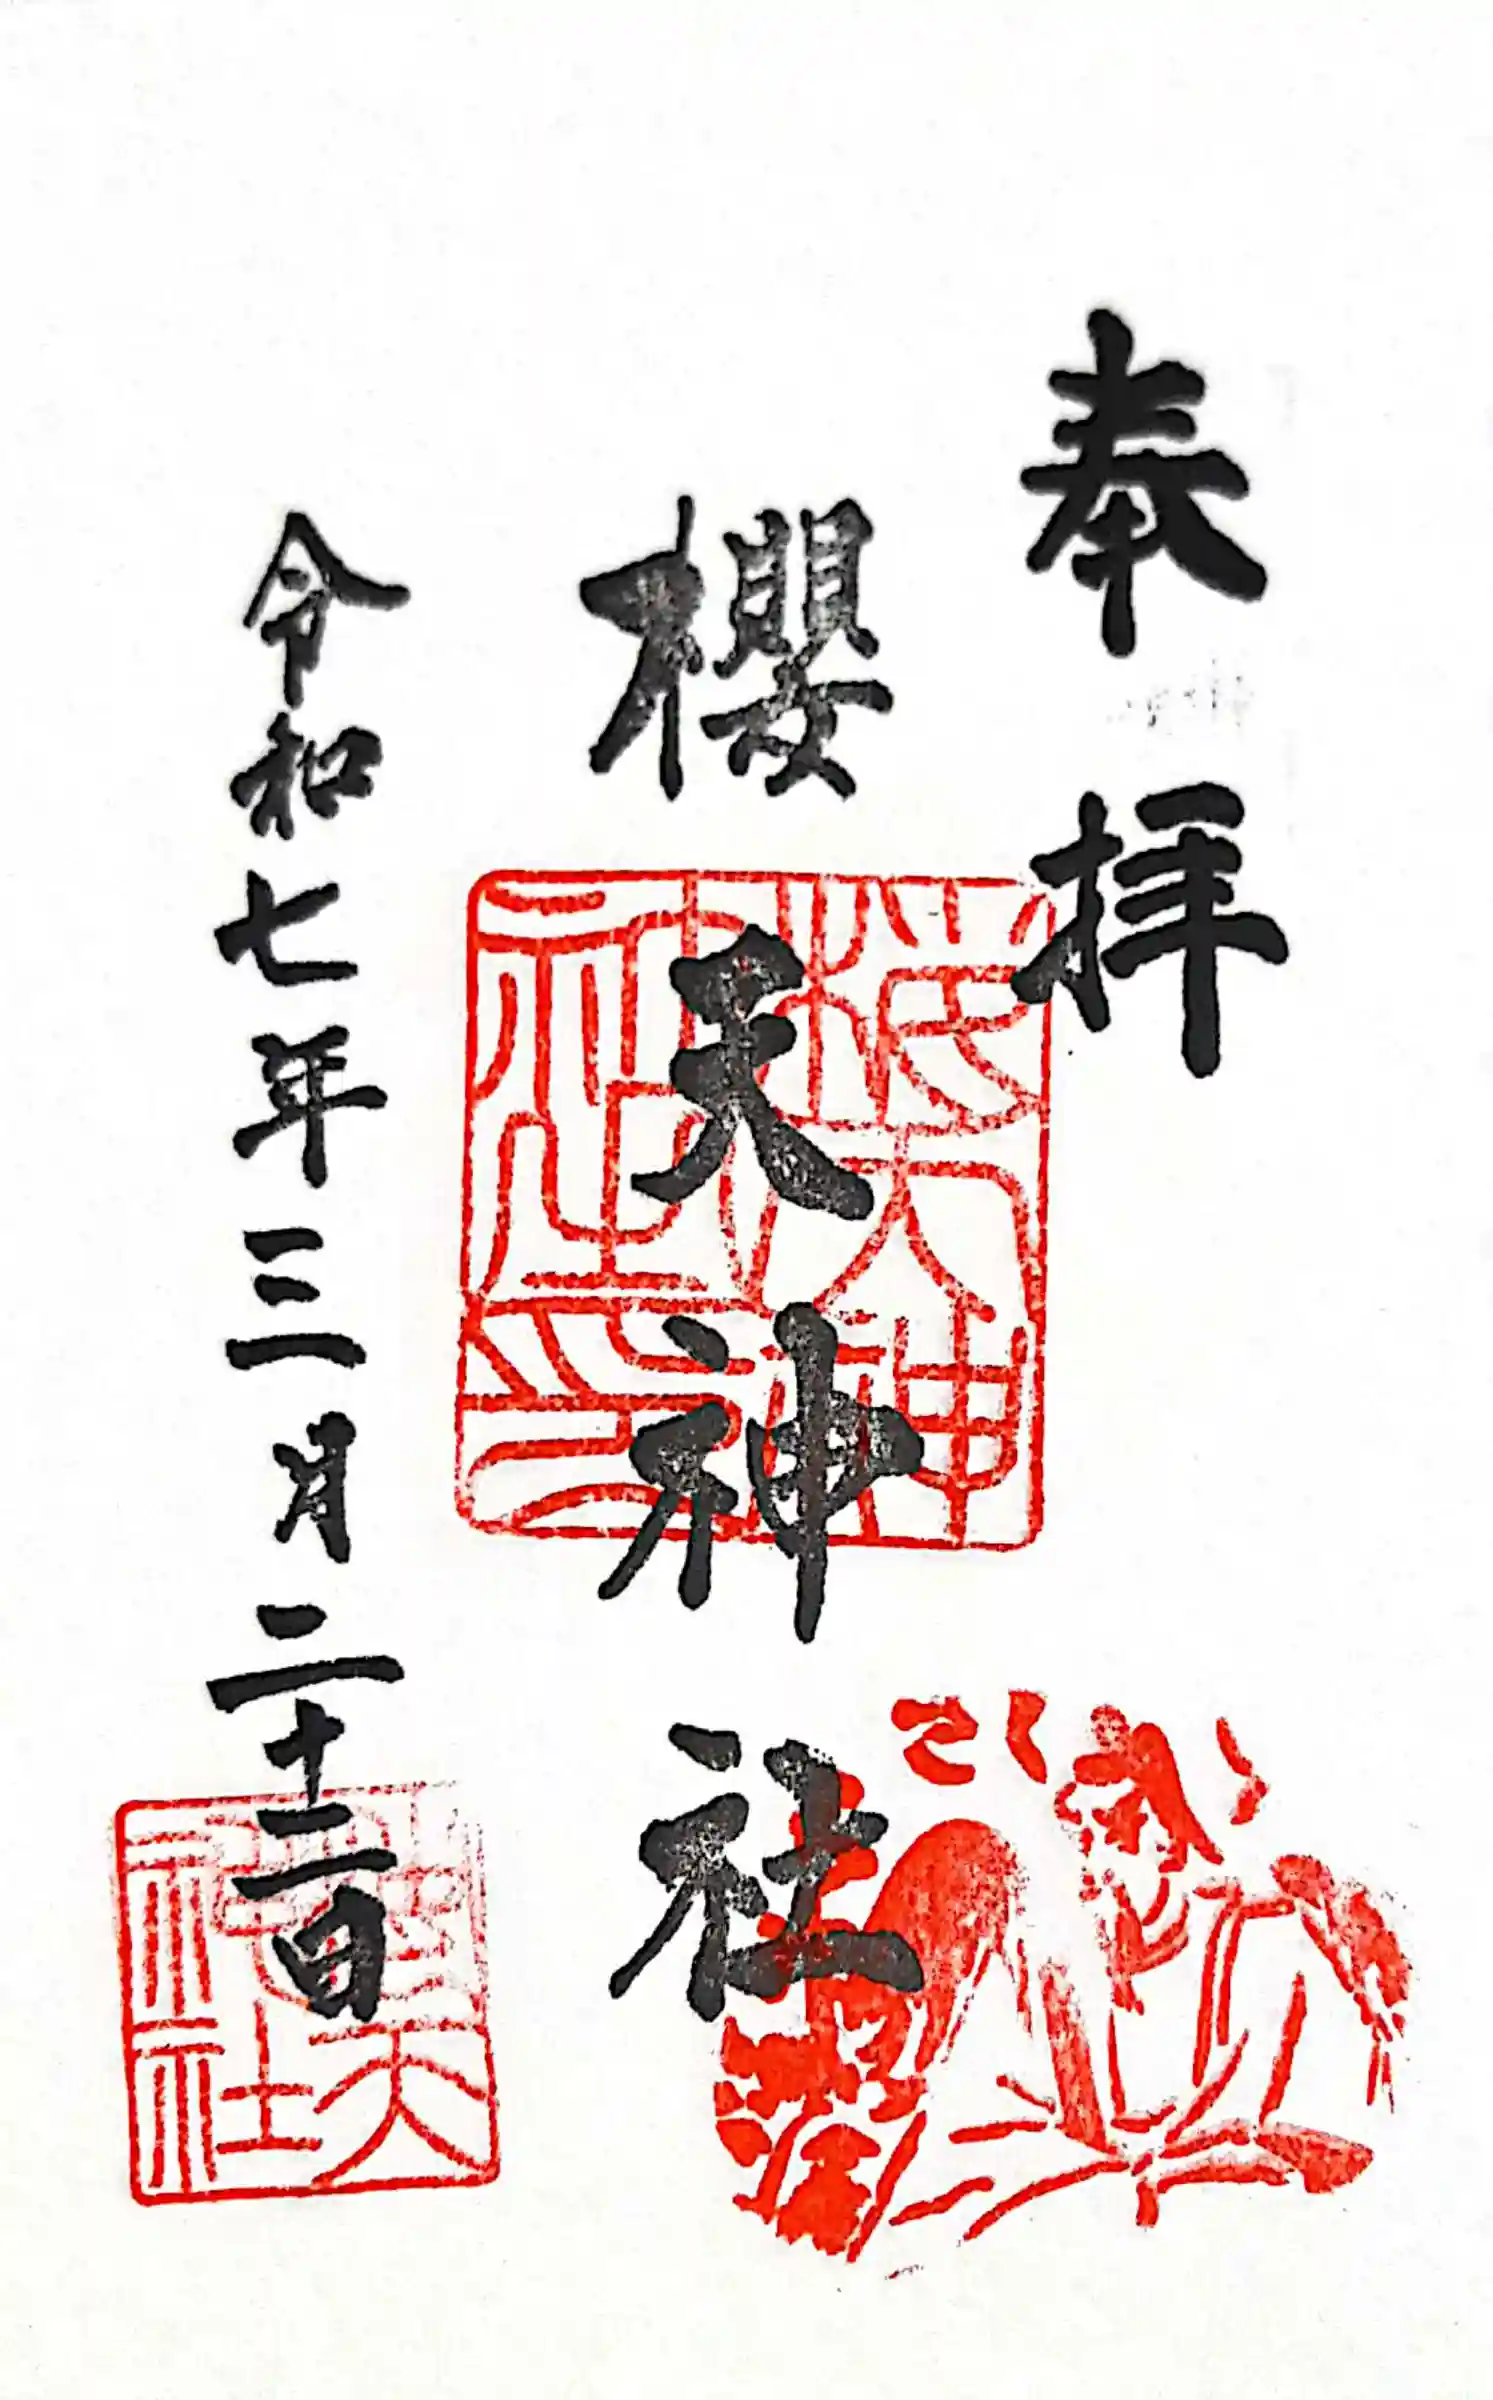 奉拝
櫻天神社
櫻天神社印
さくら
令和七年三月二十二日
櫻天神社